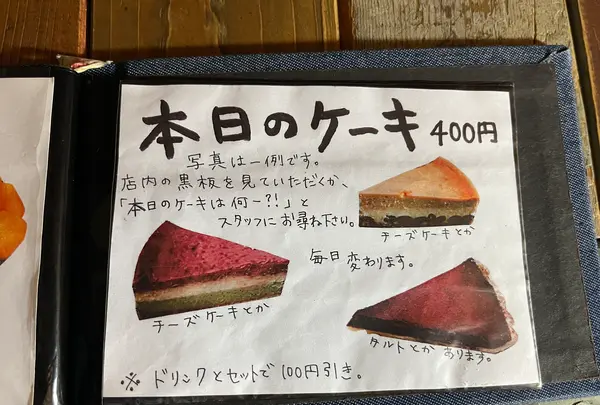 本日のケーキ 400円
写真は一例です。
店内の黒板を見ていただくか、
「本日のケーキは何ー?!」と
スタッフにお尋ね下さい。
チーズケーキとか
毎日変わります。
チーズケーキとか
タルトとかあります。
※ ドリンクとセットで100円引き。